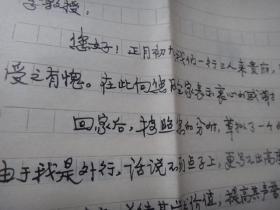 李教授：
您好！正月初九我们一行三人来贵府，
受之有愧。在此向您的全家表示衷心的感谢
回家后，按照您的分咐，草拟了一份
由于我是外行，话说不到点子上，更写不出高
其 价值，提高养